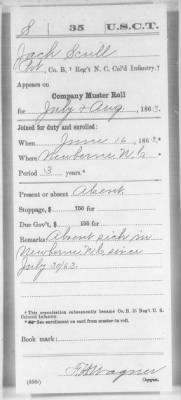 S | 35 | U.S.C.T.
Jack Scull
Pvt., Co. B, † Reg't N. C. Col'd Infantry.†
Appears on
Company Muster Roll
for July & Aug, 1863.
Joined for duty and enrolled:
When June 16, 1863.*
Where Newberne N.C.
Period 3 years.*
Present or absent Absent
Stoppage, $ 100 for
Due Gov't, $ 100 for
Remarks: Absent sick in
Newberne N.C. since
July 30/63.
† This organization subsequently became Co. B, 35 Reg't U. S.
Colored Infantry.
* See enrollment on card from muster-in roll.
Book mark:
Wagner
(358c) Copyist.